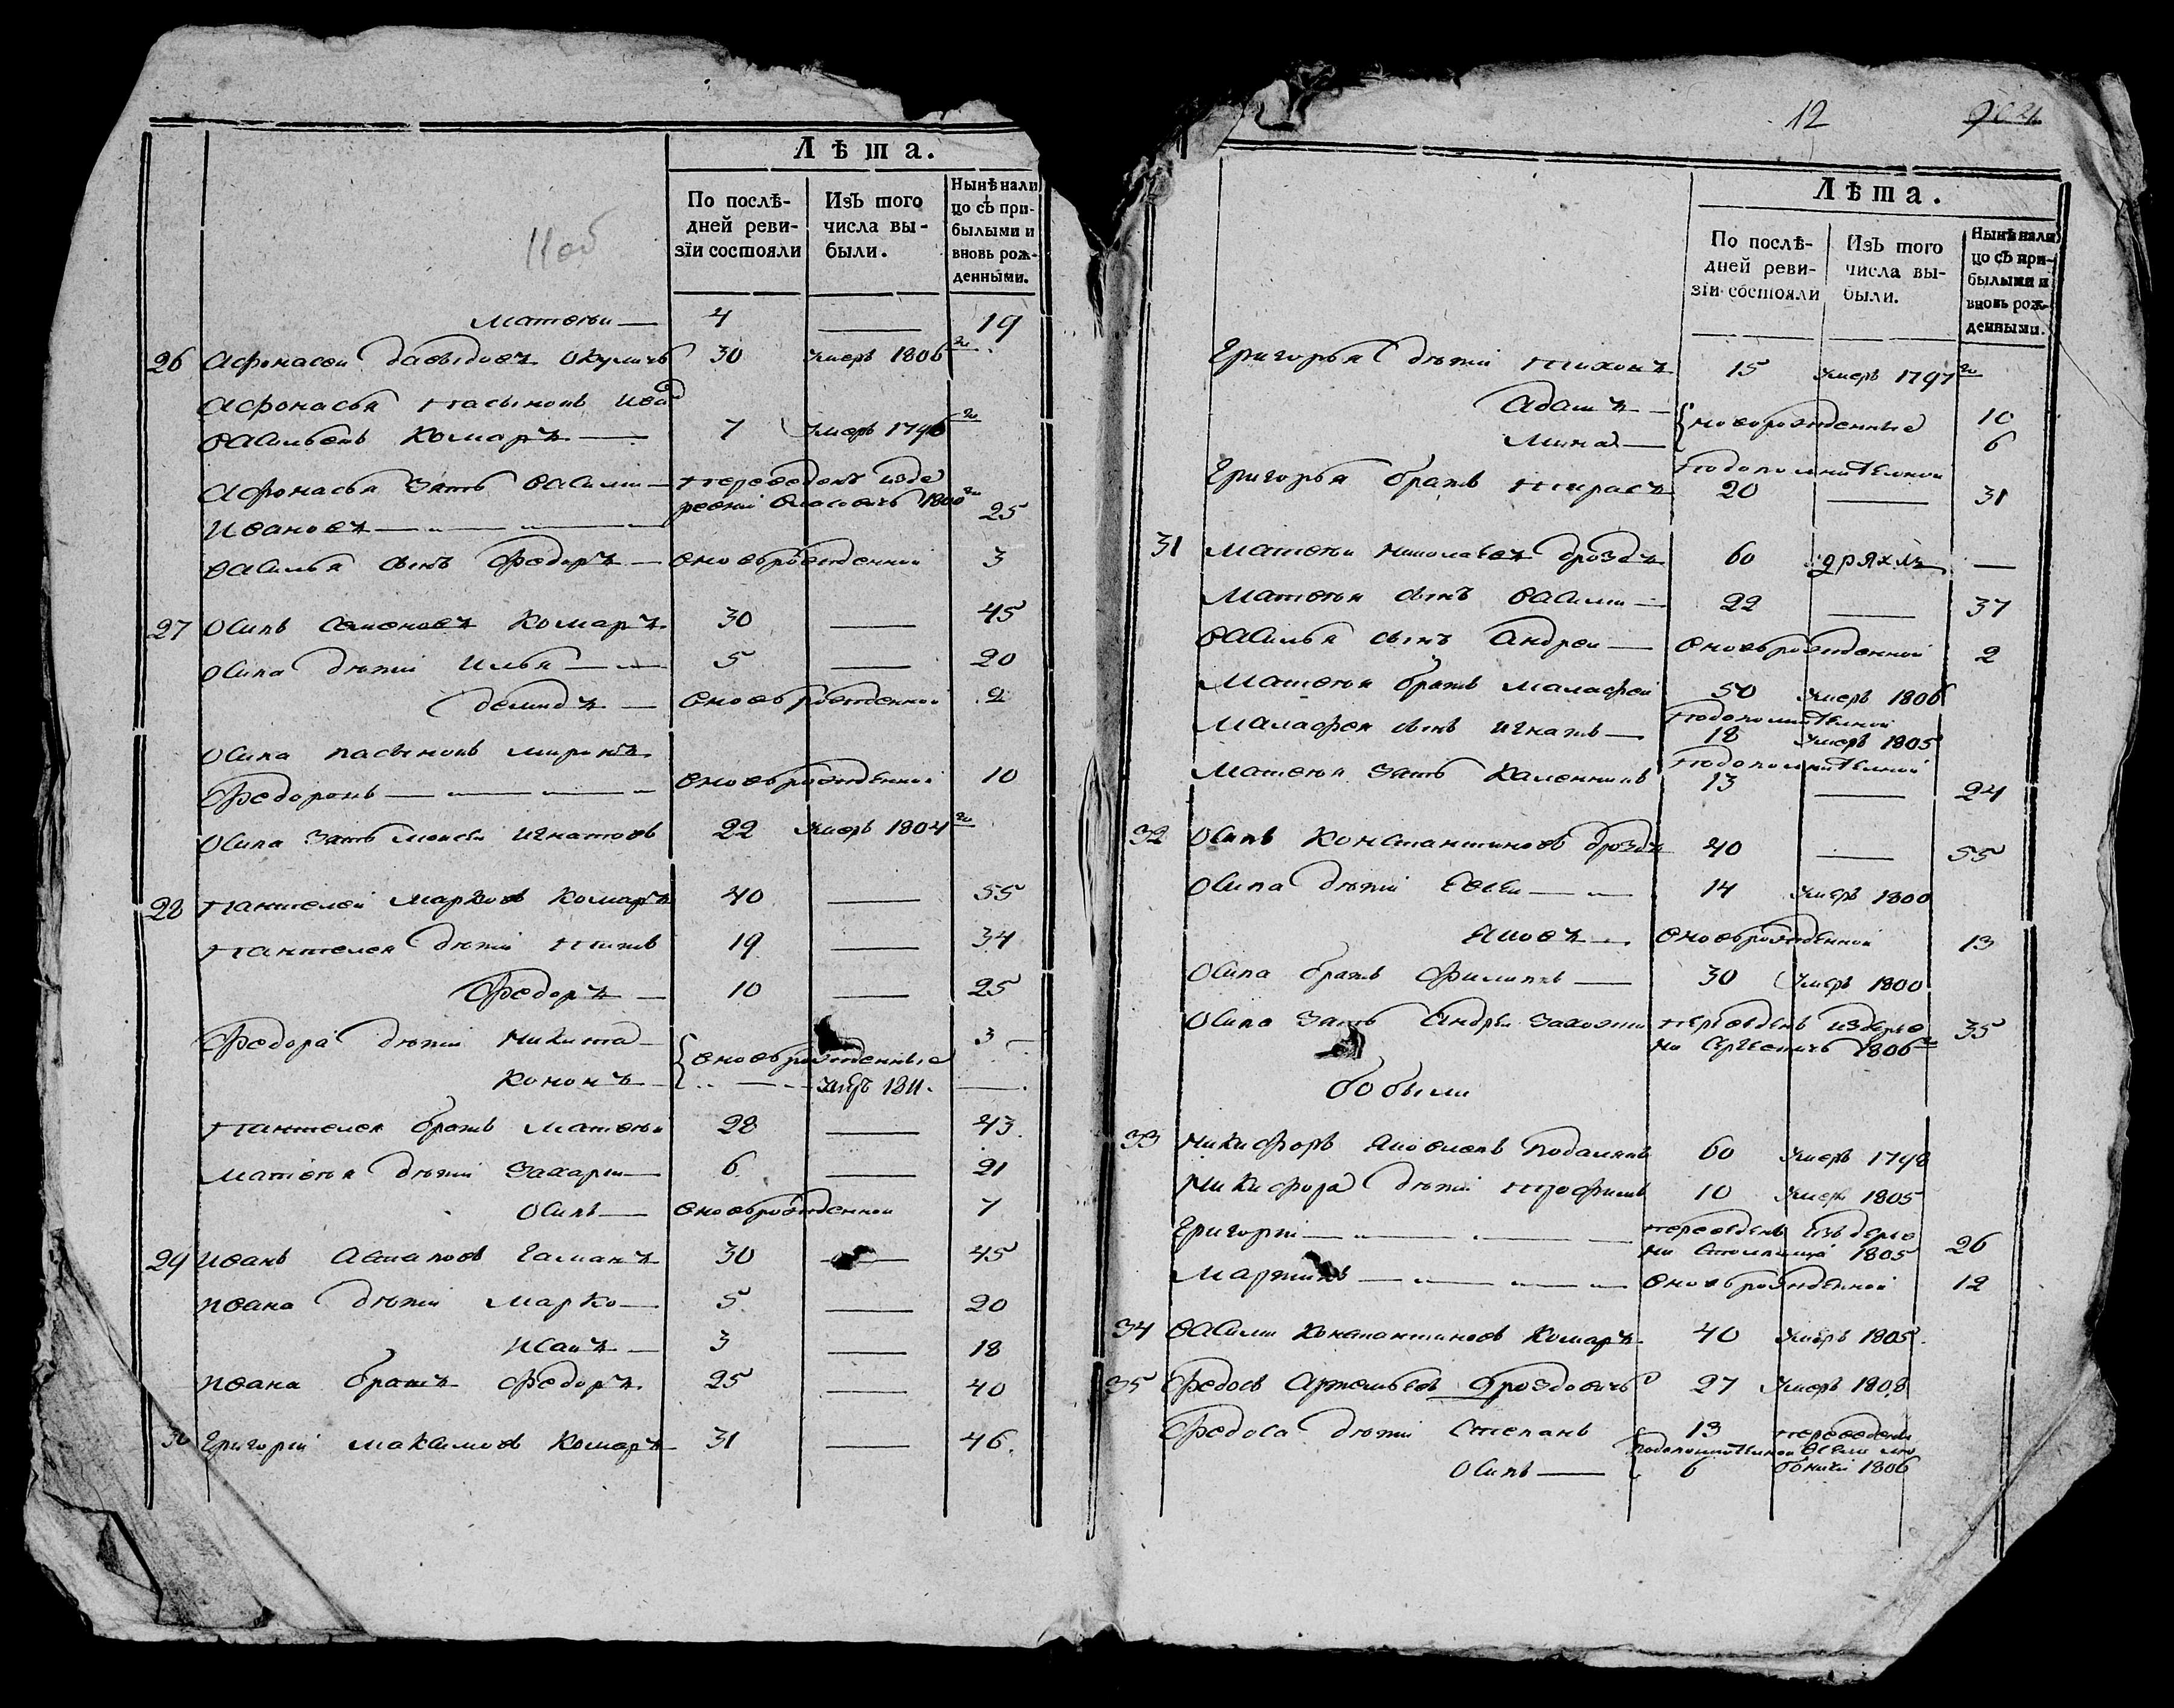 11 об
Лѣта.
По послѣ-
дней реви-
зіи состояли
Изъ того
числа вы-
были.
Нынѣ нали
цо съ при-
былыми и
вновь рож-
денными.
Матвѣи — 4 — 19
26 Афонасеи Давыдовъ Окуличъ 30 умеръ 1806го
Афонасья пасынокъ
Комаръ — 7 умеръ 1796го
Афонасья зять Василии — переведенъ изде
Ивановъ — ревни 1800го 25
Василья сынъ Федоръ — вновьрожденной 3
27 Осипъ Семеновъ Комаръ 30 — 45
Осипа дѣти Илья — 5 — 20
Демидъ — вновьрожденной 2
Осипа пасынокъ Миронъ
Федоровъ — вновьрожденной 10
Осипа зять Моисеи Игнатовъ 22 умеръ 1804го
28 Пантелеи Марковъ Комаръ 40 — 55
Пантелея дѣти Титъ 19 — 34
Федоръ — 10 — 25
Федора дѣти Никита — 3
вновьрожденные
Кононъ — умеръ 1811. —
Пантелея братъ Матвѣи 28 — 43
Матвѣя дѣти Захарии — 6 — 21
Осипъ — вновьрожденной 7
29 Иванъ Астаповъ Гаманъ 30 — 45
Ивана дѣти Марко — 5 — 20
Исаиъ — 3 — 18
Ивана братъ Федоръ 25 — 40
30 Григорій Максимовъ Комаръ 31 — 46.
12
Лѣта.
По послѣ-
дней реви-
зіи состояли
Изъ того
числа вы-
были.
Нынѣ нали
цо съ при-
былыми и
вновь рож-
денными.
Григорья дѣти Тихонъ 15 умеръ 1797го
Адамъ — 10
новорожденные
Мина — 6
пополнителной
Григорья братъ Тарасъ 20 — 31
31 Матвѣи Николаевъ Дроздъ 60 дряхлъ —
Матвѣя сынъ Василии — 22 — 37
Василья сынъ Андреи — вновьрожденной 2
Матвѣя братъ Малафей 50 умеръ 1806
пополнителной
Малафея сынъ Игнатъ — 18 умеръ 1805
пополнителной
Матвѣя зять Каленникъ 13 — 24
32 Осипъ Константиновъ Дроздъ 40 — 55
Осипа дѣти Евсеи — 14 умеръ 1800
Яковъ — вновьрожденной 13
Осипа братъ Филипъ — 30 умеръ 1800
Осипа зять Андреи переведенъ издерев
ни 1806го 35
бобыли
33 Никифоръ Яковлевъ 60 умеръ 1798
Никифора дѣти Трофимъ 10 умеръ 1805
Григорій — переведенъ изъ дерев
ни 1805 26
Мартинъ — вновьрожденной 12
34 Василии Константиновъ Комаръ 40 умеръ 1805
35 Федосъ Артемьевъ Дроздовичъ 27 умеръ 1808
Федоса дѣти Степанъ 13 переведены
пополнителной
Осипъ — 6 1806